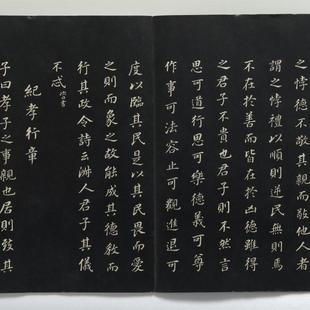 之悖德不敬其親而敬他人者
謂之悖禮以順則逆民無則焉
不在於善而皆在於凶德雖得
之君子不貴也君子則不然言
思可道行思可樂德義可尊
作事可法容止可觀進退可
度以臨其民是以其民畏而愛
之則而象之故能成其德教而
行其政令詩云淑人君子其儀
不忒
紀孝行章
子曰孝子之事親也居則致其